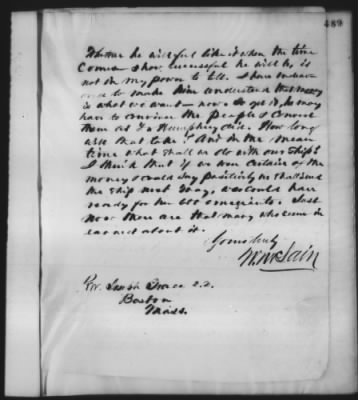 489
Whether he will feel like it when the time
comes & how successful he will be, is
not in my power to tell. I have endeav-
ored to make him understand that money
is what we want — now & to get it, he may
have to convince the people & convert
them as to Humphrey said. How long
will that take? And in the mean
time what shall we do with our ship?
I think that if we were certain of the
money & could say positively we shall send
the ship next May, we could have
ready for her 600 emigrants. Just
now there are that many who seem in
earnest about it.
Yours truly
Wm McLain
Rev. Joseph Tracy D.D.
Boston
Mass.